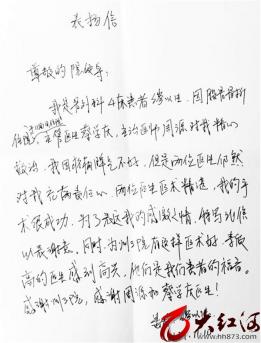 表扬信
尊敬的院领导：
我是骨外科4床患者
主管医生黎学庆，主治医师周源对我精心
救治，我因我病脾气不好，但是两位医生仍然
对我充满责任心，两位医生医术精湛，我的手
术很成功，为了表达我的感激之情，特写此信
以表谢意。同时，为州三院有这样医术好、素质
高的医生感到高兴，他们是我们患者的福音。
感谢州三院，感谢周源和黎学庆医生！
患者
大红河
www.hh873.com